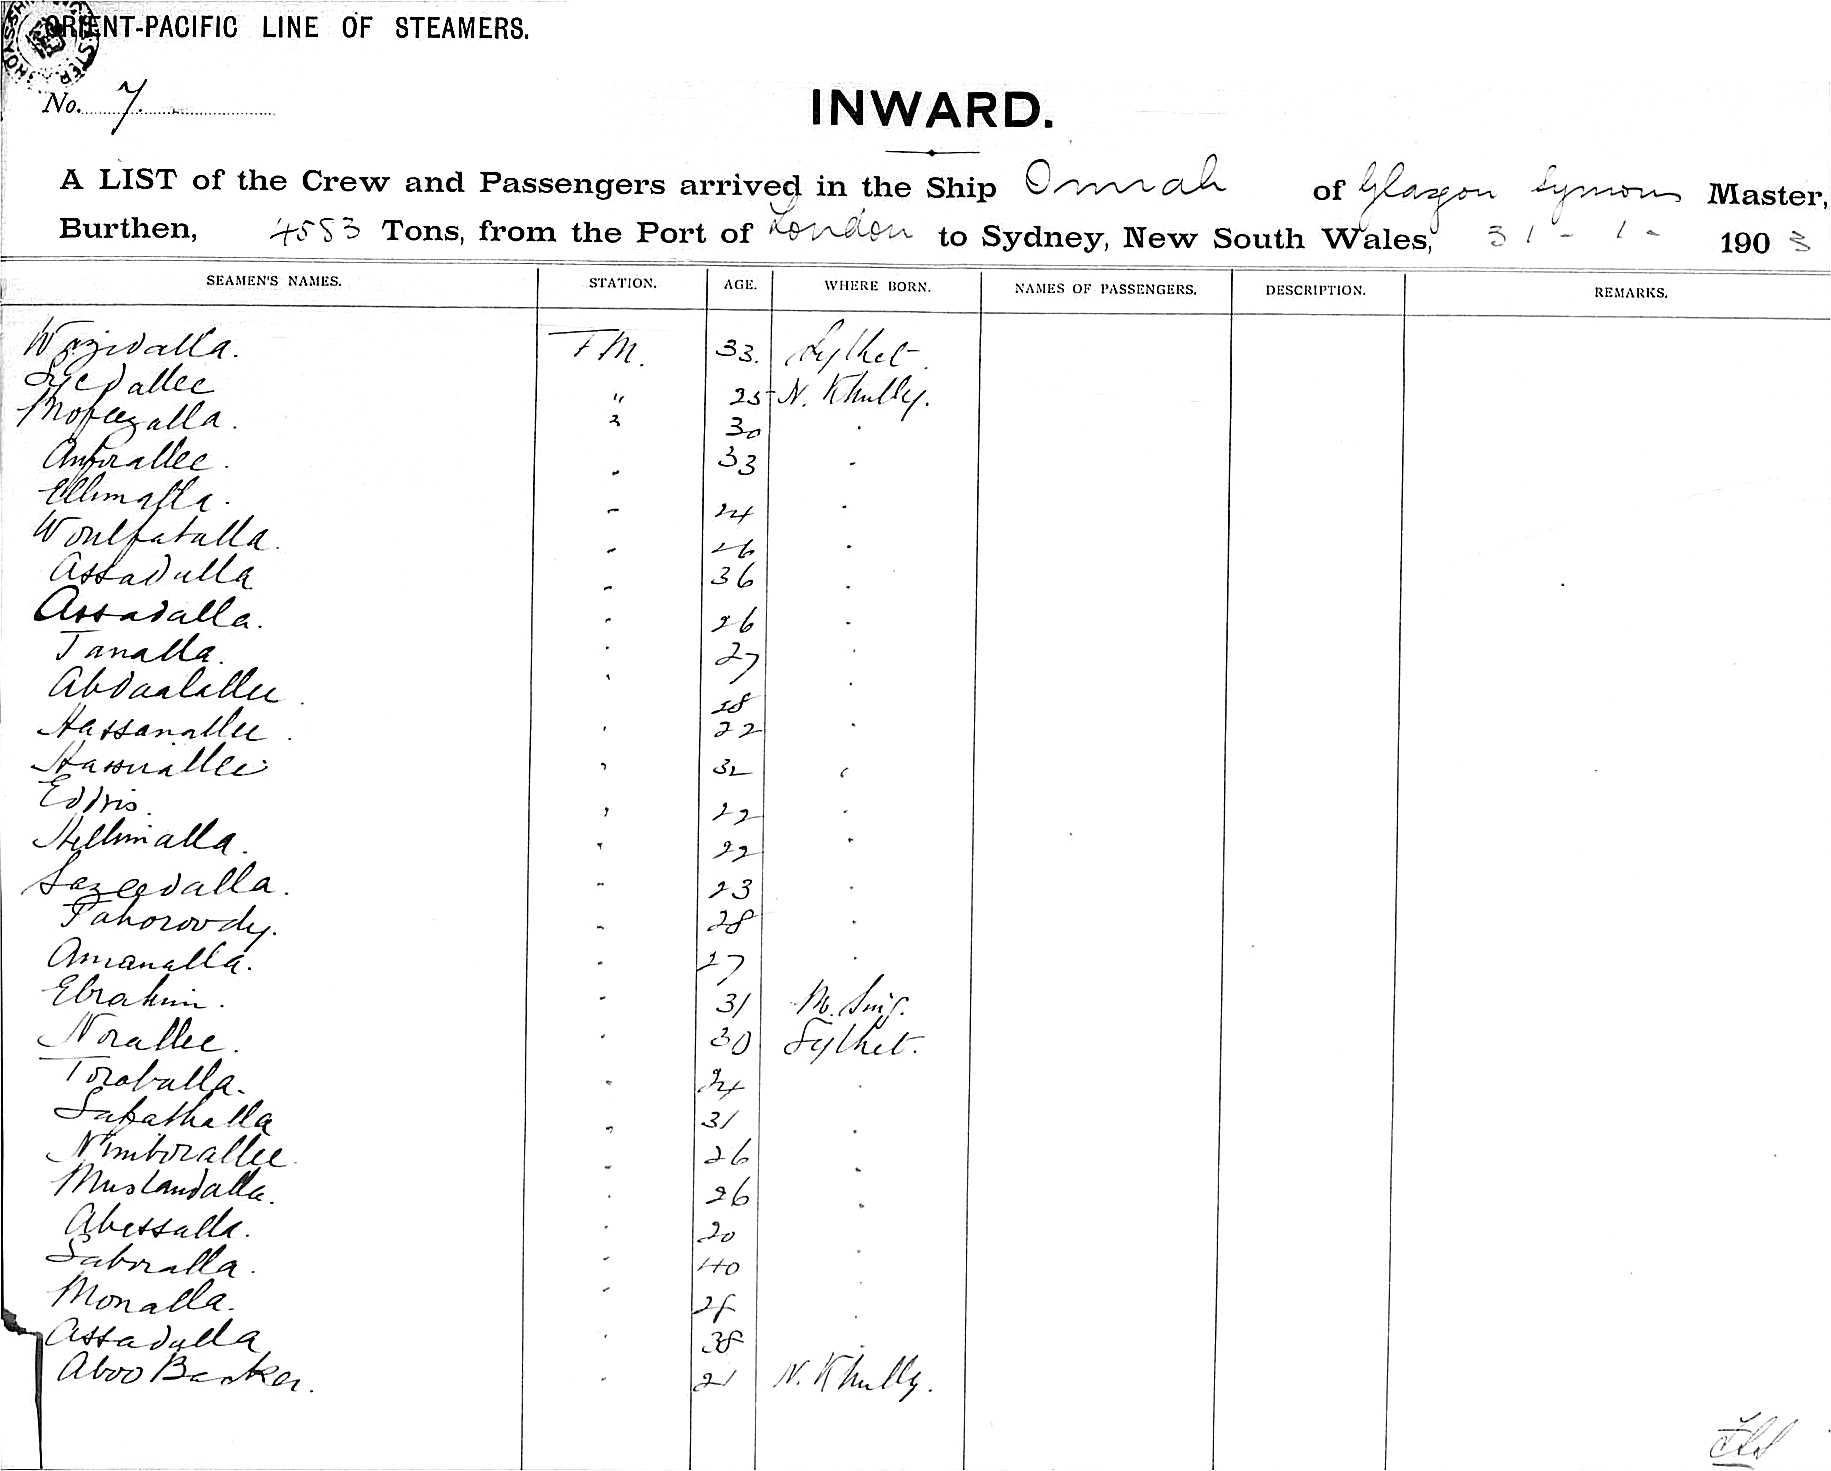 ORIENT-PACIFIC LINE OF STEAMERS.
No. 7.
INWARD.
A LIST of the Crew and Passengers arrived in the Ship Omrah of Glasgow Symons Master,
Burthen, 4553 Tons, from the Port of London to Sydney, New South Wales, 31 - 1 - 1903
SEAMEN'S NAMES. STATION. AGE. WHERE BORN. NAMES OF PASSENGERS. DESCRIPTION. REMARKS.
Wazidalla. F M. 33. Sylhet.
Syedallee " 25 N. Khully.
Mofeezalla. " 30 "
Anforallee. " 33 "
Ellimalla. " 24 "
" 26 "
Assadulla " 36 "
Assadalla. " 26 "
Tanalla. " 27 "
Abdaalallee. " 28 "
Hassanallee. " 22 "
Hassirallee " 32 "
Eddris. " 22 "
Hellimalla. " 22 "
Sazeedalla. " 23 "
Pahoroody. " 28 "
Amanalla. " 27 "
Ebrahim. " 31 M. Sing.
Norallee. " 30 Sylhet.
Torabulla. " 24 "
Safathalla " 31 "
Nimborallee. " 26 "
" 26 "
Abessalla. " 20 "
Saboralla. " 40 "
Monalla. " "
Assadulla " 38 "
Aboo Backer. " 21 N. Khully.